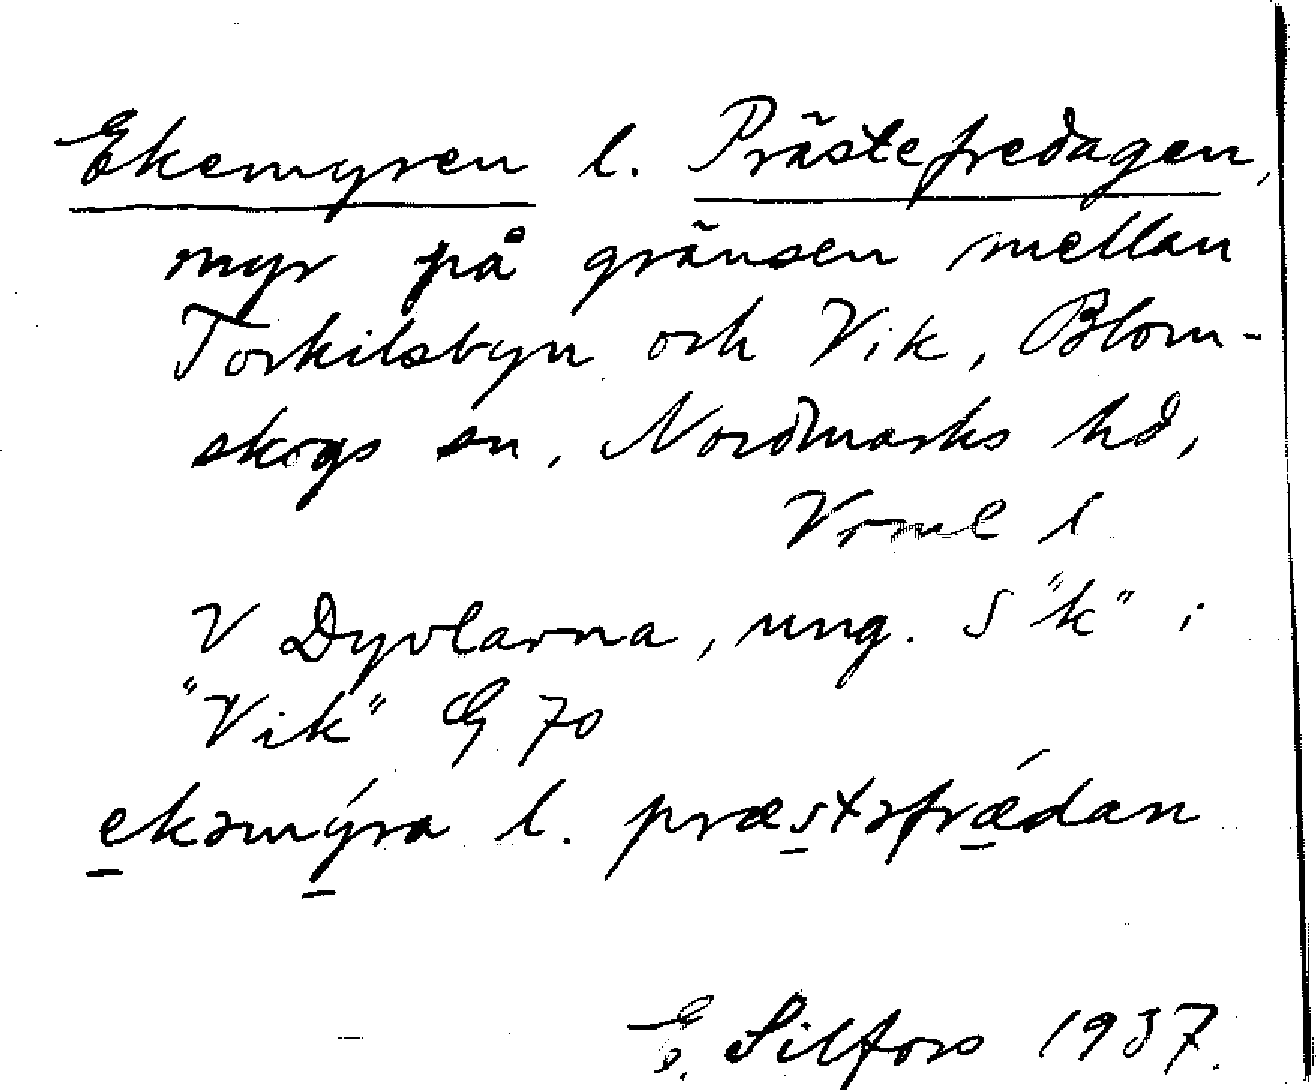 Ekemyren l. Prästefredagen,
myr på gränsen mellan
Torkilsbyn och Vik, Blom-
skogs sn, Nordmarks hd,
Vrml l
V Dyvlarna, ung. S "k" i
"Vik" G 70
ekəmýra l. præstəfrǽdan
E. Silfors 1937.